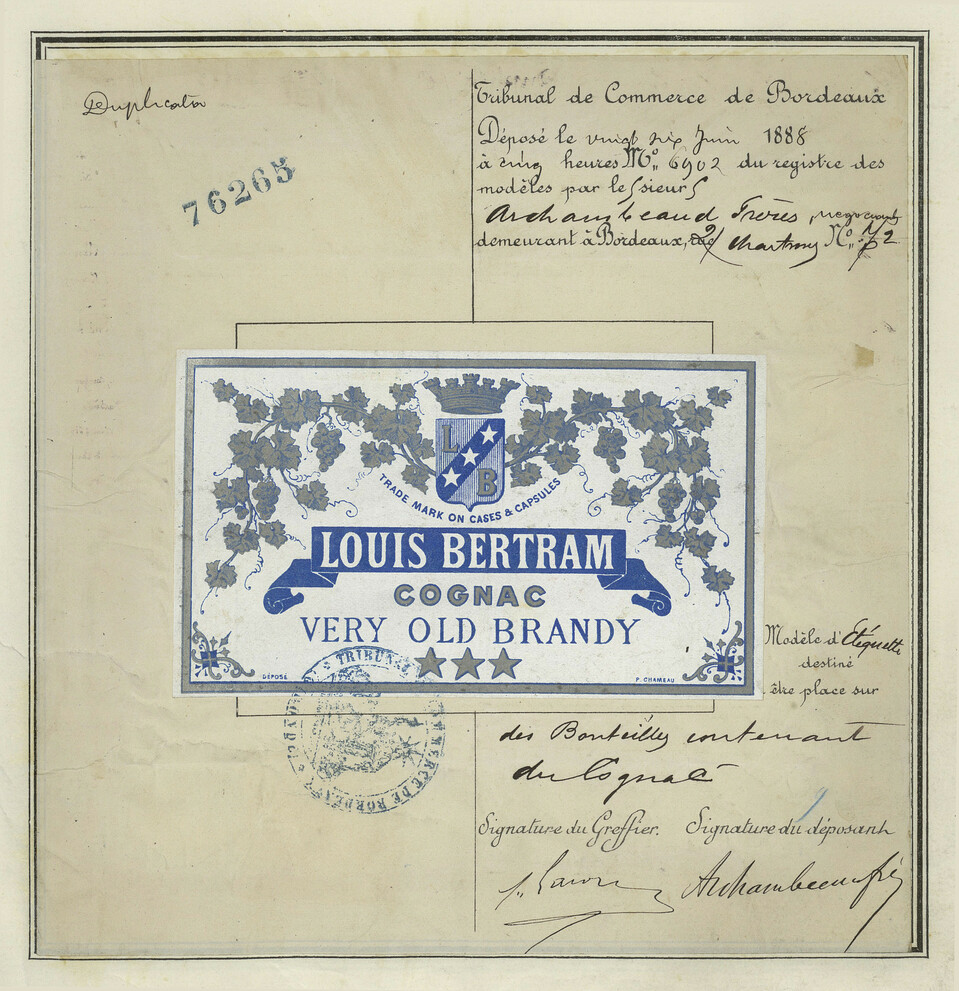 Duplicata
76265
Tribunal de Commerce de Bordeaux
Déposé le vingt six Juin 1888
à cinq heures No. 6902 du registre des
modèles par les sieurs
Archambeaud Frères, négociants
demeurant à Bordeaux, Chartrons No.
L
B
TRADE MARK ON CASES & CAPSULES
LOUIS BERTRAM
COGNAC
VERY OLD BRANDY
DÉPOSÉ
P. CHAMEAU
Modèle d'Etiquette
destiné
être place sur
des Bouteilles contenant
du Cognac
TRIBUNAL COMMERCE DE BORDEAUX
Signature du Greffier. Signature du déposant
Archambeaud